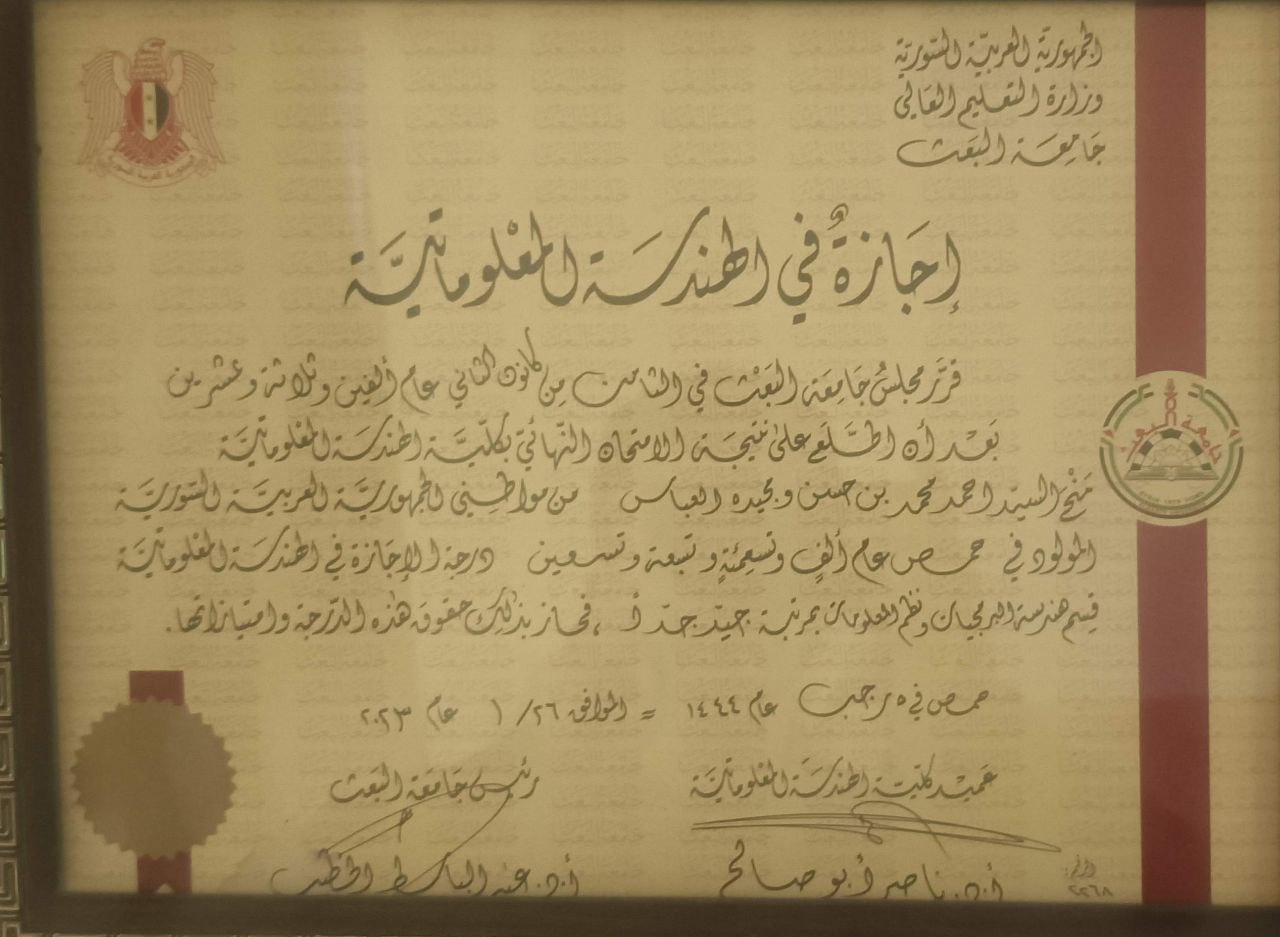 الجمهورية العربية السورية
وزارة التعليم العالي
جامعة البعث
إجازة في الهندسة المعلوماتية
قرر مجلس جامعة البعث في الثامن من كانون الثاني عام ألفين وثلاثة وعشرين
بعد أن اطلع على نتيجة الامتحان النهائي بكلية الهندسة المعلوماتية
منح السيد احمد محمد بن حسن و العباس من مواطني الجمهورية العربية السورية
المولود في حمص عام ألف وتسعمئة و تسعة وتسعين درجة الإجازة في الهندسة المعلوماتية
قسم هندسة البرمجيات ونظم المعلومات بمرتبة جيد جداً ، فحاز بذلك حقوق هذه الدرجة وامتيازاتها.
حمص في ٥ رجب عام ١٤٤٤ = الموافق ٢٦/ ١ عام ٢٠٢٣
عميد كلية الهندسة المعلوماتية
رئيس جامعة البعث
أ.د. ناصر أبو صالح
أ.د. عبد الباسط الخطيب
الرقم:
٢٢٦٨
جامعة البعث
الجمهورية العربية السورية